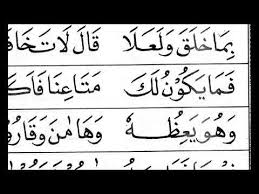 بِمَا خَلَقَ وَلَعَلَا قَالَ لَا تَخَافَا
فَمَا يَكُوْنُ لَكَ مَتَاعِنَا فَاَكَ
وَهُوَ يَعِظُهٗ وَهَامٰنَ وَقَارُوْ